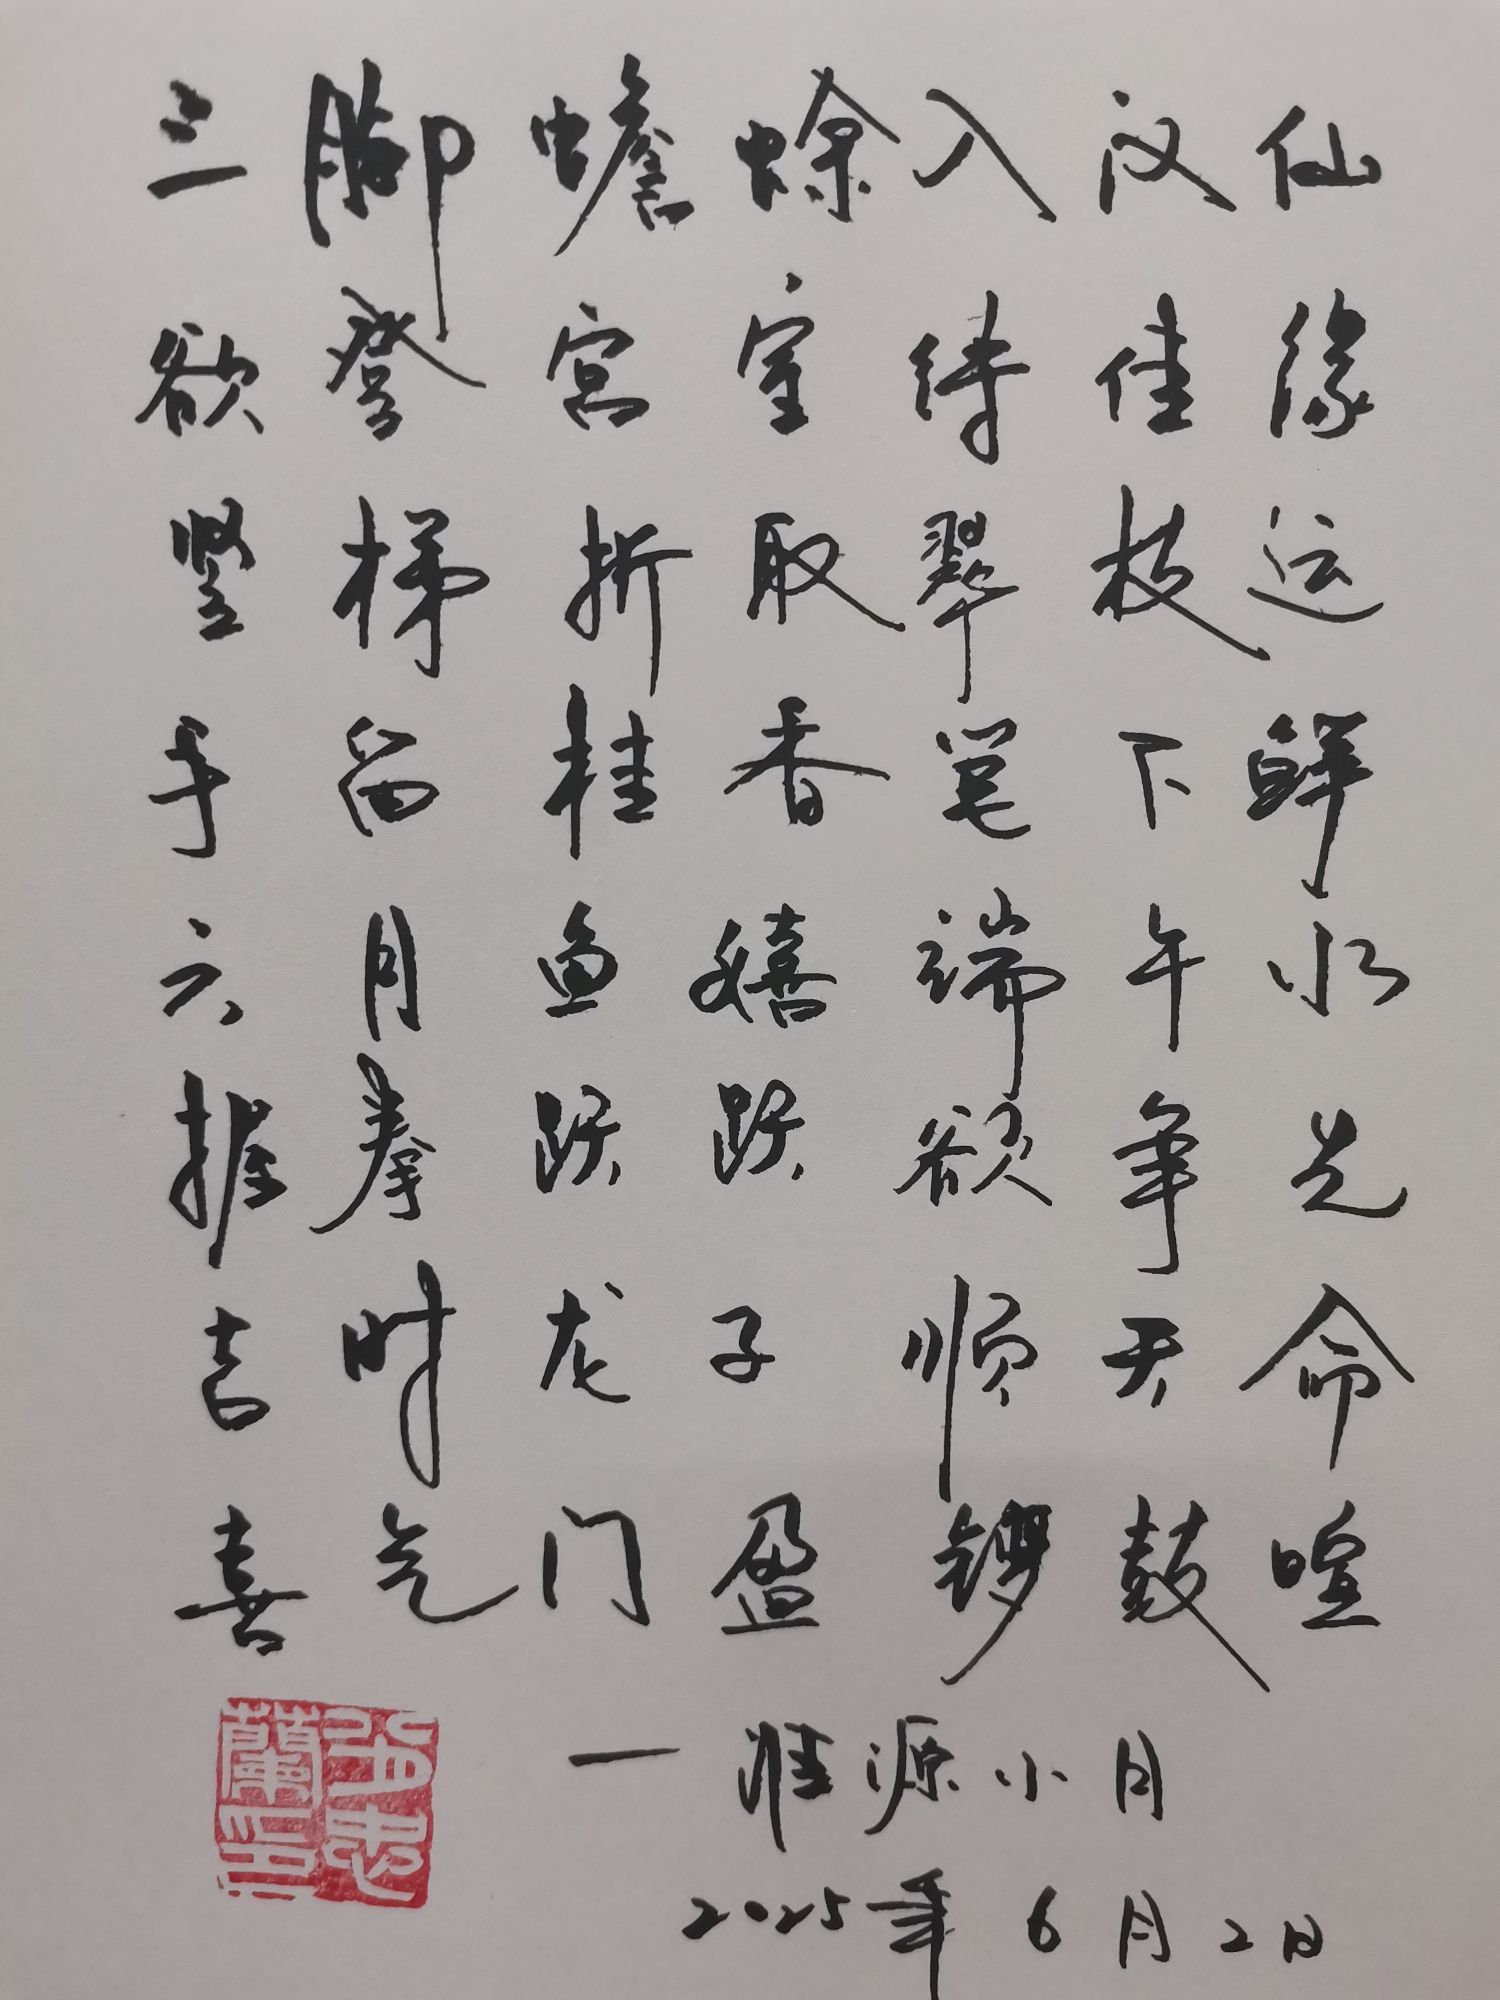 三脚蟾蜍入汉仙
欲登宫室待佳缘
竖梯折取翠枝运
手留桂香笔下鲜
六月鱼嬉端午水
握拳跃跃欲争先
吉时龙子顺天命
喜气门盈锣鼓喧
一淮源小月
2025年6月2日